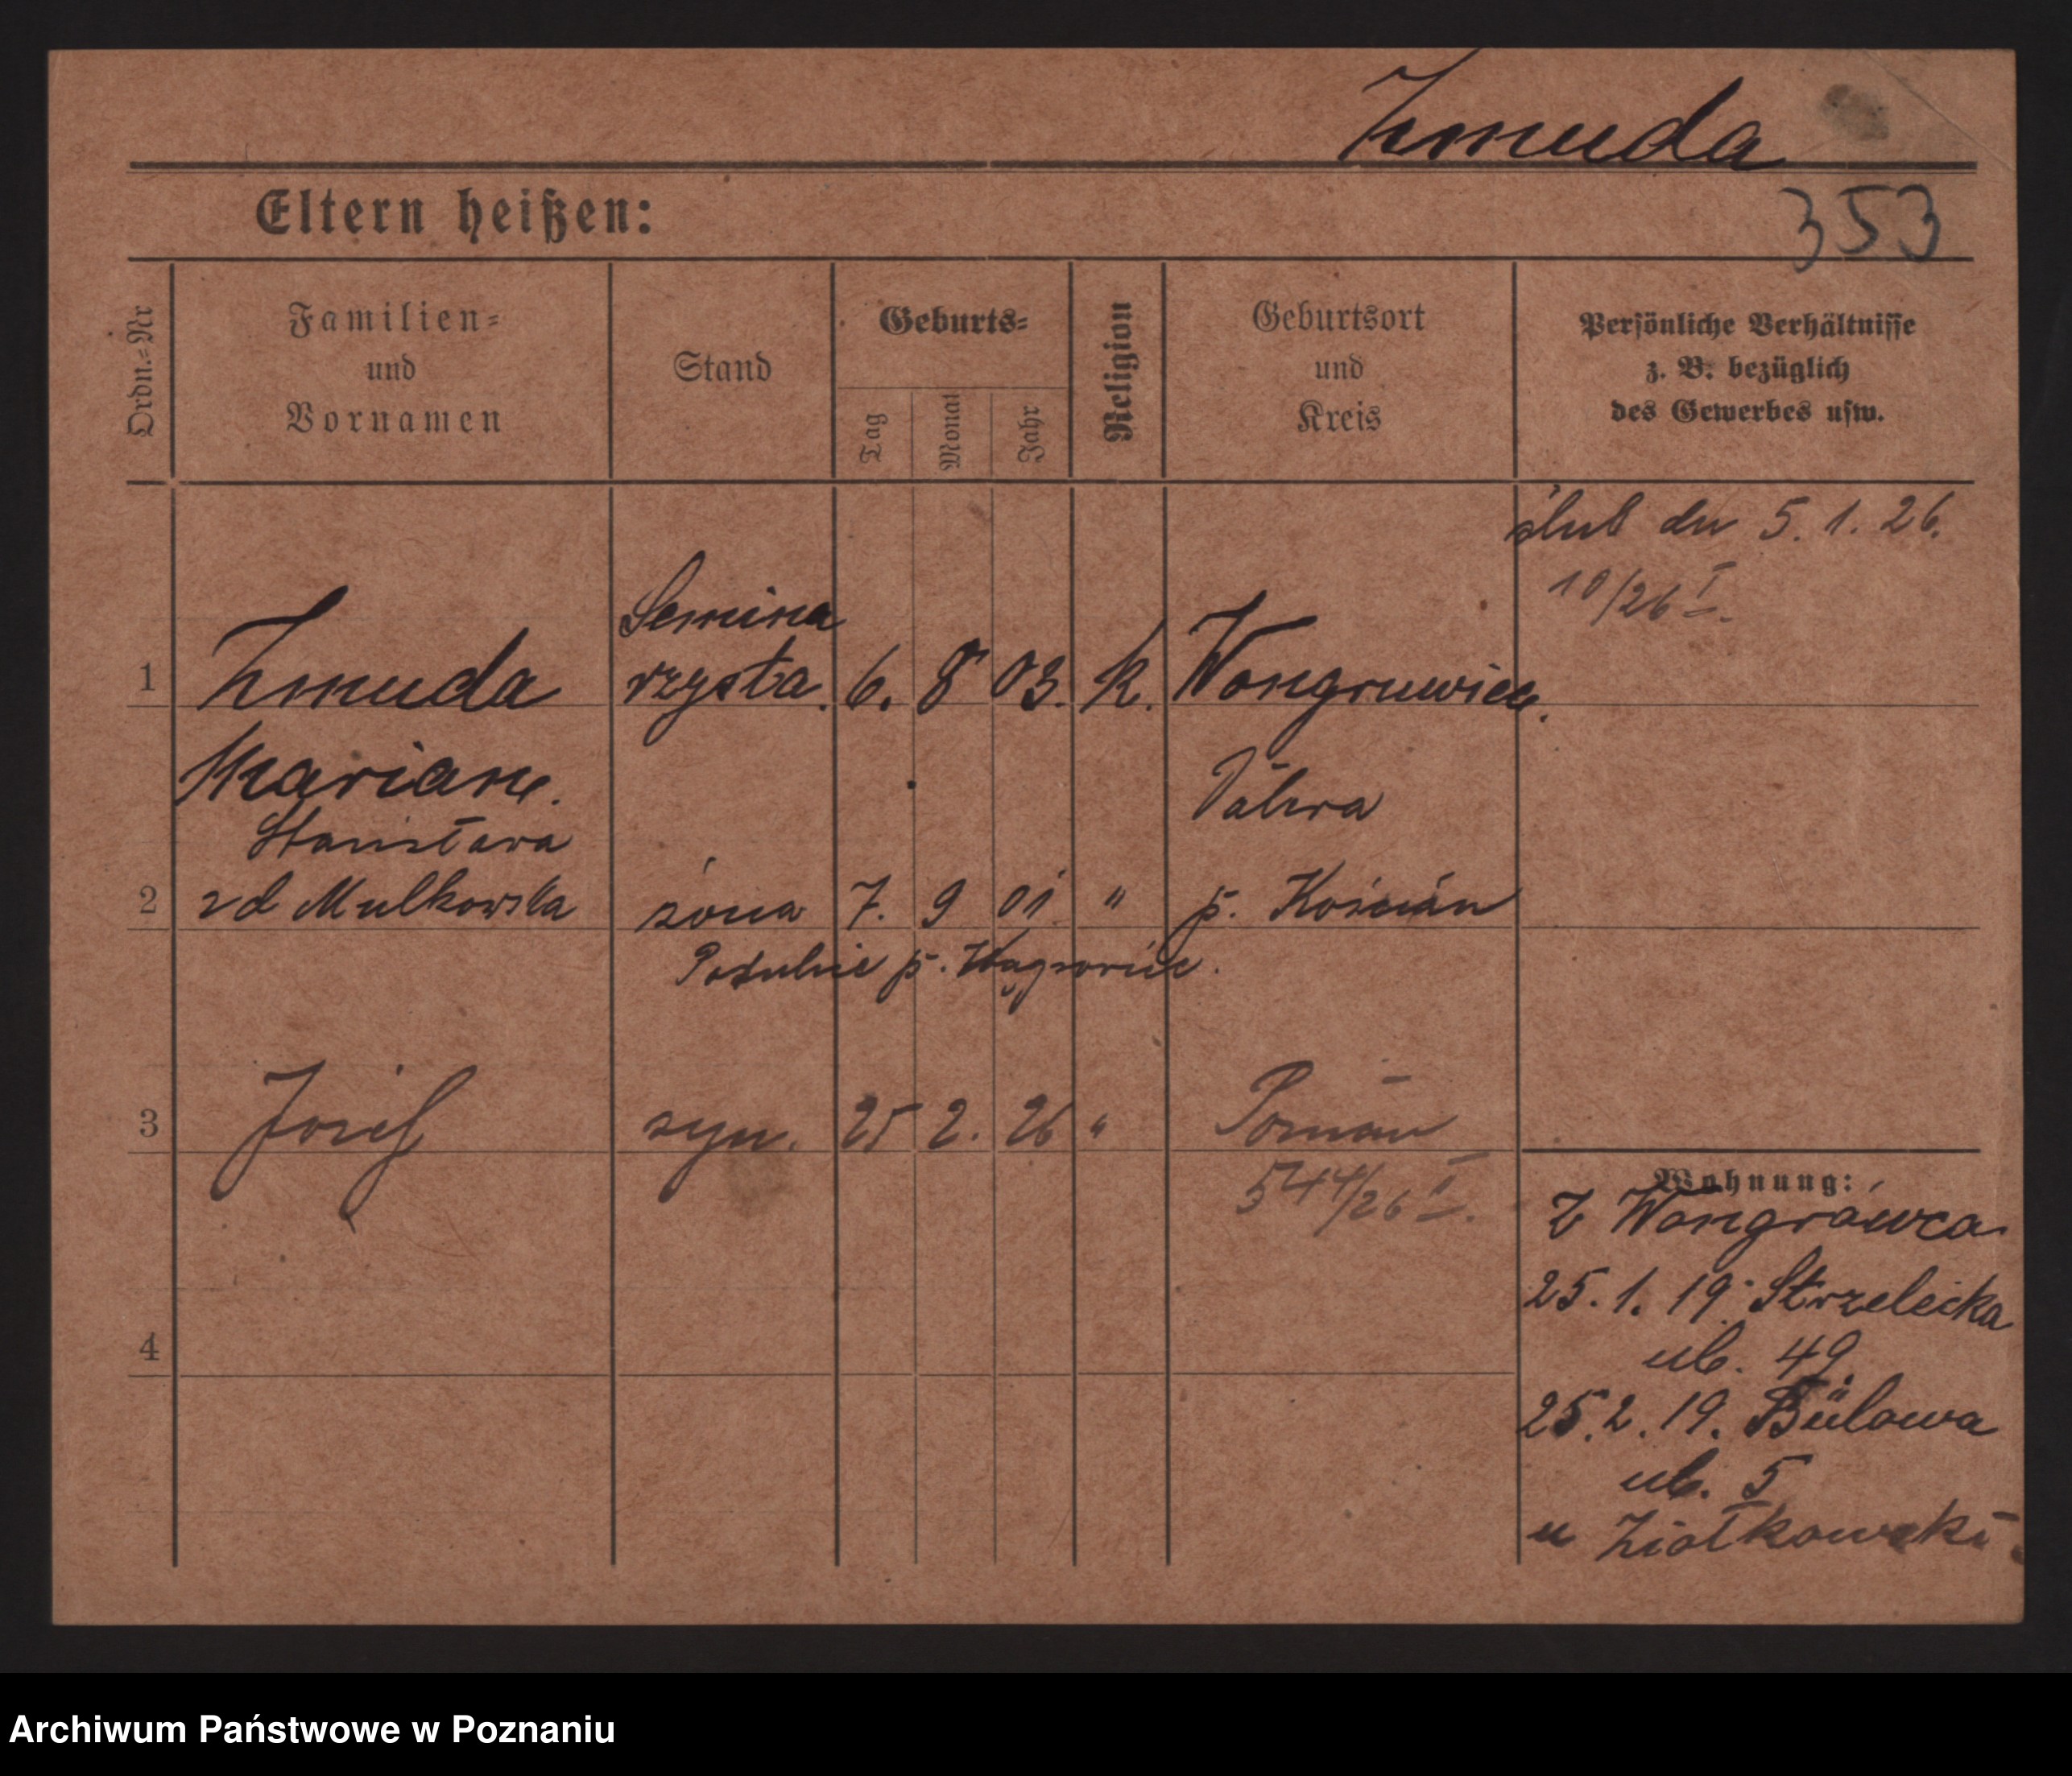 Zmuda
353
Eltern heißen:
Ordn.-Nr
Familien-
und
Vornamen
Stand
Geburts-
Tag
Monat
Jahr
Religion
Geburtsort
und
Kreis
Persönliche Verhältnisse
z. B. bezüglich
des Gewerbes usw.
ślub dn 5. 1. 26.
10/26 I.
1
Zmuda
Semina
rzysta.
6. 8 03. k.
Wongruwiec.
Maryan.
Stanisława
2
zd Mulkowska
żona
7. 9 01 "
p. Kościan
p. Wągrowiec.
3
Józef
syn.
25 2. 26 "
Poznań
544/26 I.
4
Wohnung:
Z Wongrówca
25. 1. 19. Strzelecka
ul. 49.
25. 2. 19. Bülowa
ul. 5
u Ziołkowski
Archiwum Państwowe w Poznaniu